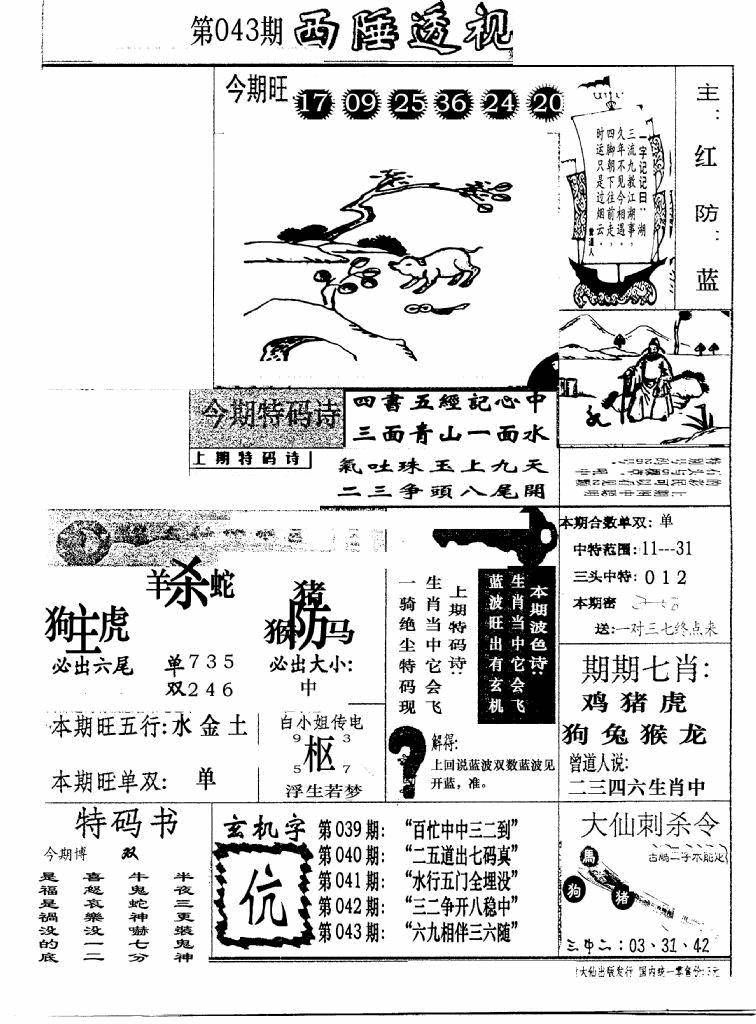 第043期 西陲透视
今期旺 17 09 25 36 24 20
一字记记曰：湖
三流九教江湖事，
久年不见今相遇。
四脚朝下往前走，
时运只是过烟云。
曾道人
主：红 防：蓝
今期特码诗
四書五經記心中
三面青山一面水
上期特码诗
氣吐珠玉上九天
二三争頭八尾開
羊杀蛇
狗主虎
猪
猴防马
必出六尾
单735
双246
必出大小：
中
本期旺五行：水金土
本期旺单双：单
白小姐传电
9 3
枢
5 7
浮生若梦
本期波色诗：
生肖当中它会飞
蓝波旺出有玄机
上期特码诗：
生肖当中它会飞
一骑绝尘特码现
解得：
上回说蓝波双数蓝波见
开蓝，准。
本期合数单双：单
中特范围：11---31
三头中特：0 1 2
本期密
送：一对三七终点来
期期七肖：
鸡猪虎
狗兔猴龙
曾道人说：
二三四六生肖中
特码书
今期博 双
半夜三更装鬼神
牛鬼蛇神嚇七分
喜怒哀樂没一二
是福是祸没的底
玄机字
伉
第039期：“百忙中中三二到”
第040期：“二五道出七码真”
第041期：“水行五门全埋没”
第042期：“三二争开八稳中”
第043期：“六九相伴三六随”
大仙刺杀令
馬
狗
猪
三中二：03、31、42
大仙出版发行 国内统一零售价：3元